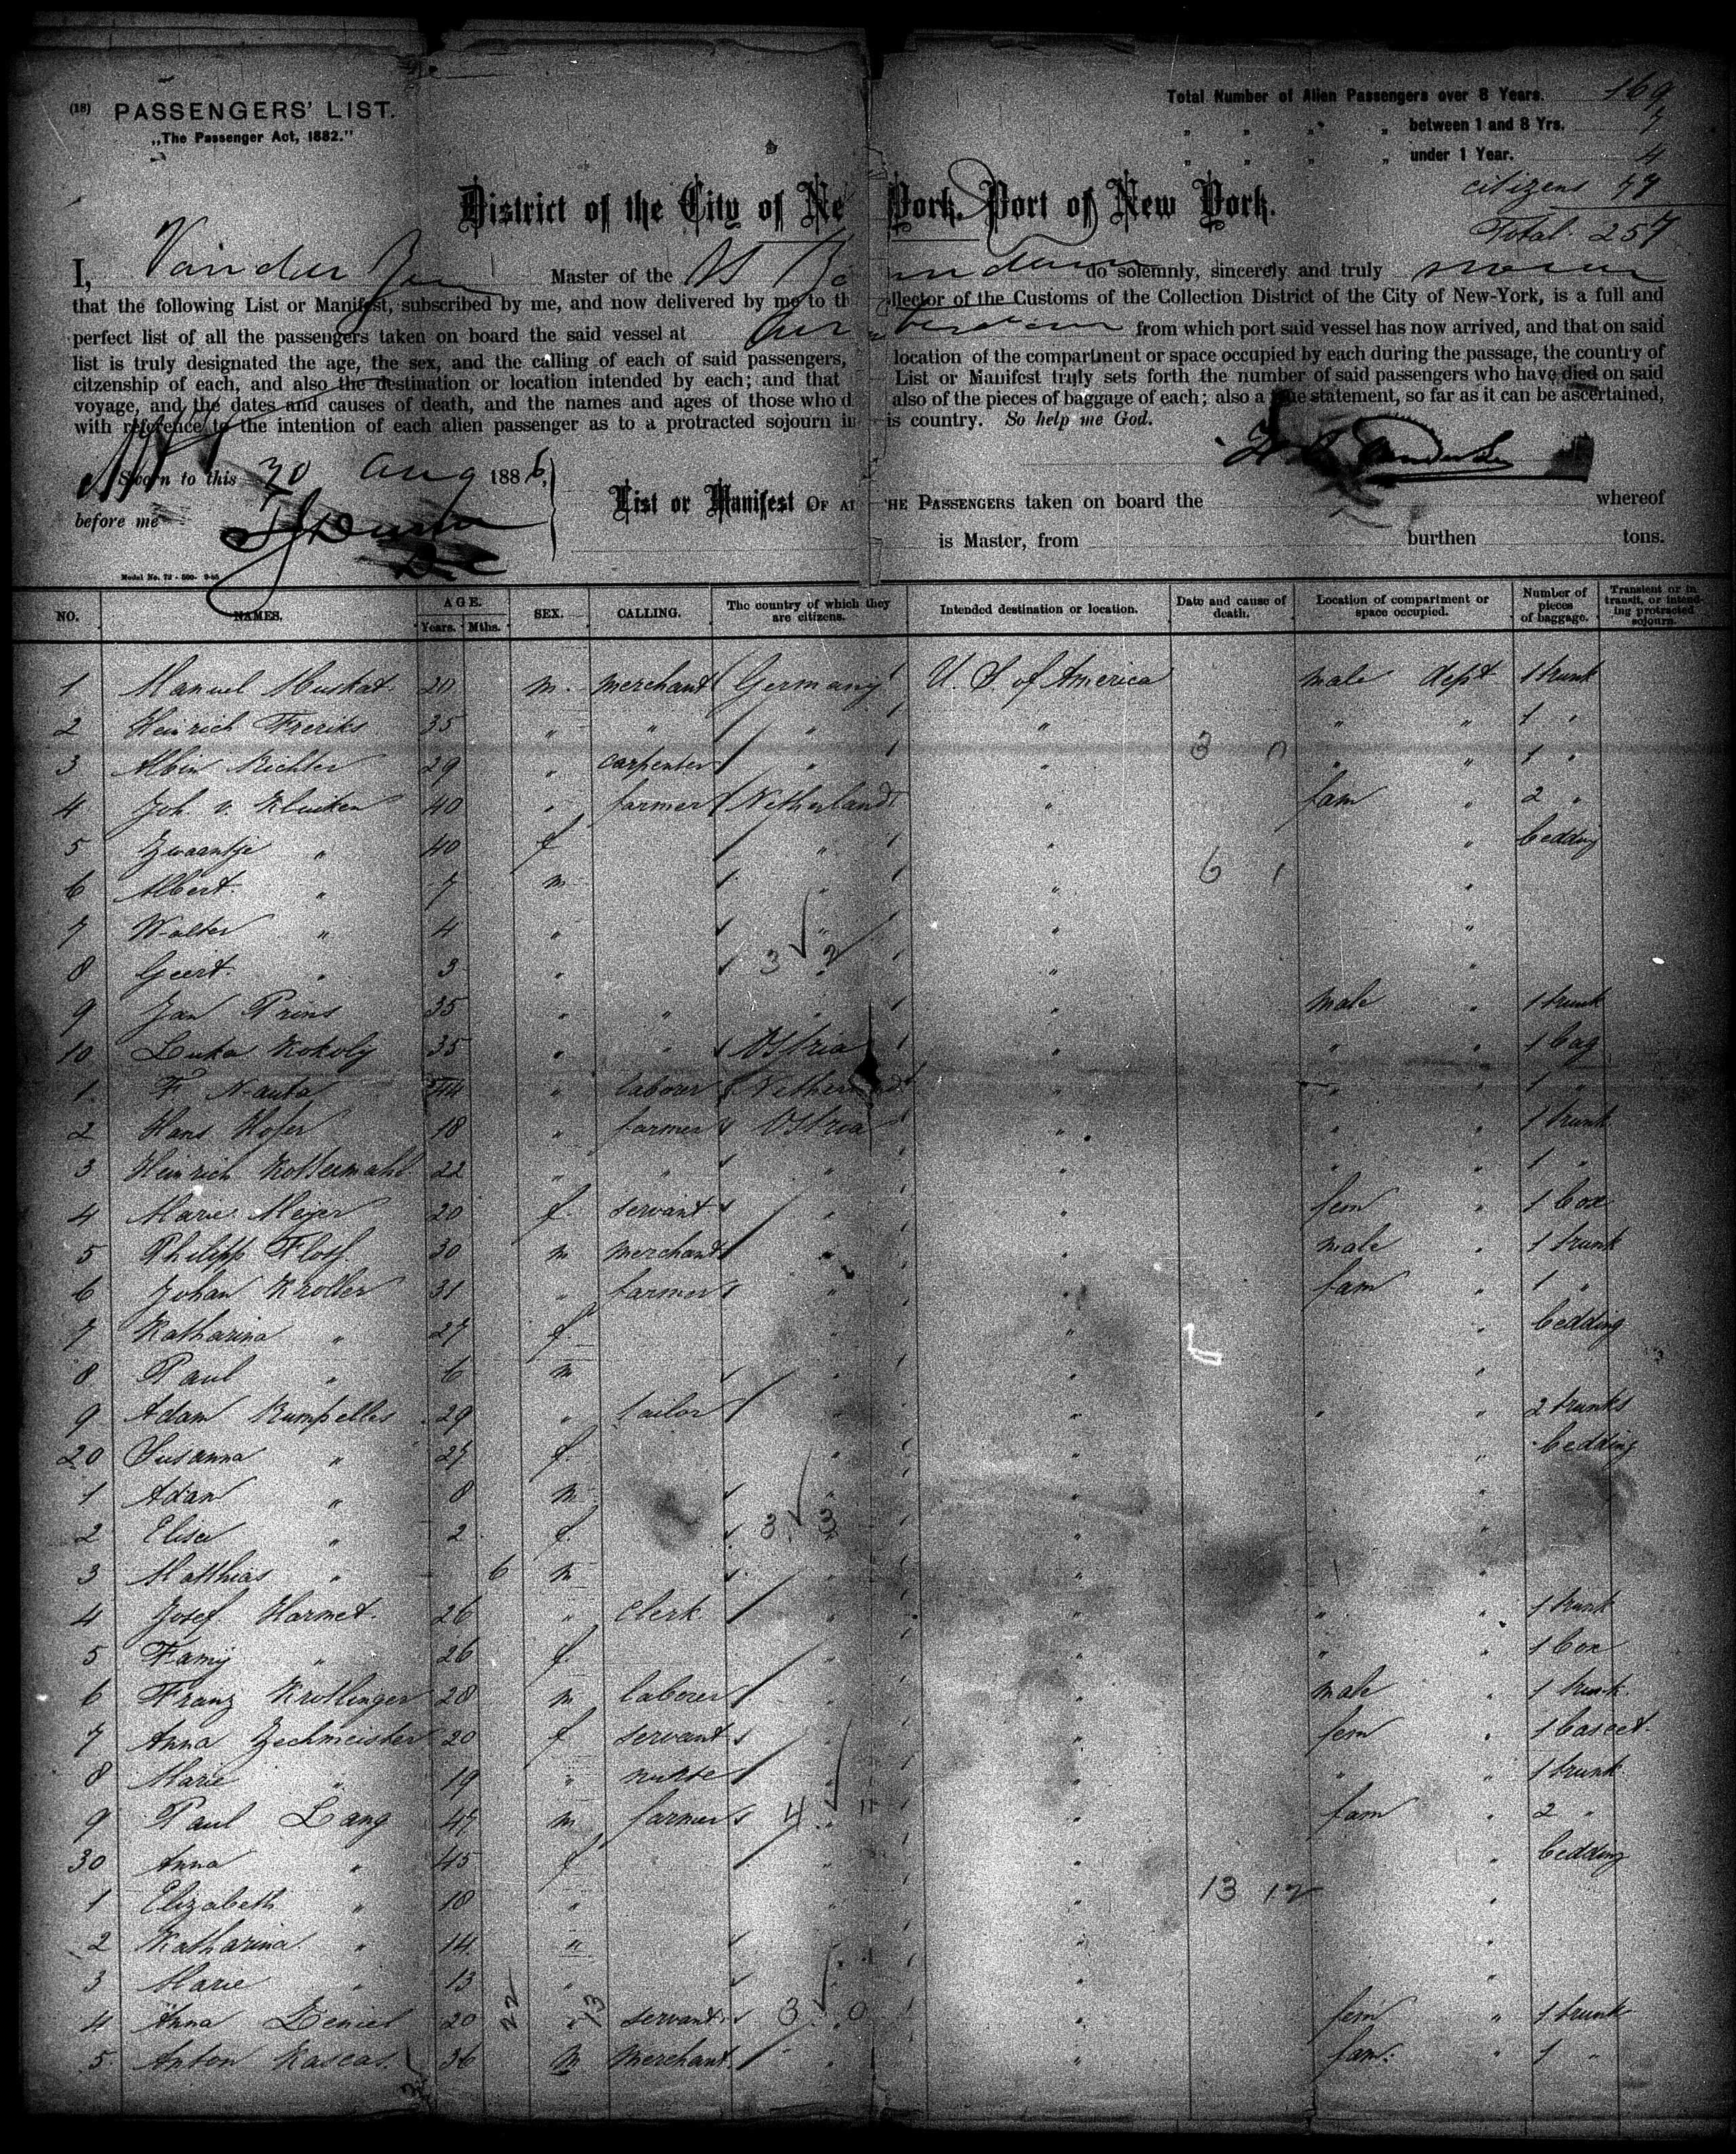 (18) PASSENGERS' LIST.
„The Passenger Act, 1882."
Total Number of Alien Passengers over 8 Years. 169
" " " " between 1 and 8 Yrs. 7
" " " " under 1 Year. 4
citizens 77
Total 257
District of the City of Ne York. Port of New York.
I, Vander Master of the do solemnly, sincerely and truly swear
that the following List or Manifest, subscribed by me, and now delivered by me to th llector of the Customs of the Collection District of the City of New-York, is a full and
perfect list of all the passengers taken on board the said vessel at from which port said vessel has now arrived, and that on said
list is truly designated the age, the sex, and the calling of each of said passengers, location of the compartment or space occupied by each during the passage, the country of
citzenship of each, and also the destination or location intended by each; and that List or Manifest truly sets forth the number of said passengers who have died on said
voyage, and the dates and causes of death, and the names and ages of those who d also of the pieces of baggage of each; also a true statement, so far as it can be ascertained,
with reference to the intention of each alien passenger as to a protracted sojourn in is country. So help me God.
Sworn to this 30 aug 1886,
before me
List or Manifest OF AL HE PASSENGERS taken on board the whereof
is Master, from burthen tons.
Model No. 72
NO. NAMES. AGE. Years. Mths. SEX. CALLING. The country of which they are citizens. Intended destination or location. Date and cause of death. Location of compartment or space occupied. Number of pieces of baggage. Transient or in transit, or intending protracted sojourn.
1 Manuel Muskat 20 m. merchant Germany U. S. of America male dept 1 trunk
2 Heinrich Freriks 35 " " " " " " 1 "
3 Albin Richter 29 " carpenter " " " " 1 "
4 Joh. v. Kluiken 40 " farmer Netherland " fam " 2 "
5 Zwaantje " 40 f " " " bedding
6 Albert " 7 m " " "
7 Walter " 4 " " " "
8 Geert " 3 " " " "
9 Jan Prins 35 " " " " male " 1 trunk
10 Luka Kokoly 35 " " Ostria " " " 1 bag
1 F. Nauta 44 " laborer Netherland " " " 1 "
2 Hans Hofer 18 " farmer Ostria " " " 1 trunk
3 Heinrich 22 " " " " " " 1 "
4 Marie Meyer 20 f servant " " fem " 1 box
5 Philipp 30 m merchant " " male " 1 trunk
6 Johan Kroller 31 " farmer " " fam " 1 "
7 Katharina " 27 f " " " bedding
8 Paul " 6 m " " "
9 Adam Rumpelles 29 " tailor " " " " 2 trunks
20 Susanna " 27 f " " " bedding
1 Adam " 8 m " " "
2 Elise " 2 f " " "
3 Matthias " 6 m " " "
4 Josef Harmet 26 " clerk " " " " 1 trunk
5 Fanny " 26 f " " " " 1 box
6 Franz Krotlinger 28 m laborer " " male " 1 trunk
7 Anna Zechmeister 20 f servant " " fem " 1 bascet
8 Marie " 19 " nurse " " " " 1 trunk
9 Paul Lang 47 m farmer " " fam " 2 "
30 Anna " 45 f " " " bedding
1 Elizabeth " 18 " " " "
2 Katharina " 14 " " " "
3 Marie " 13 " " " "
4 Anna 20 " servant " " fem " 1 trunk
5 Anton Kascas 36 m merchant " " fam: " 1 "